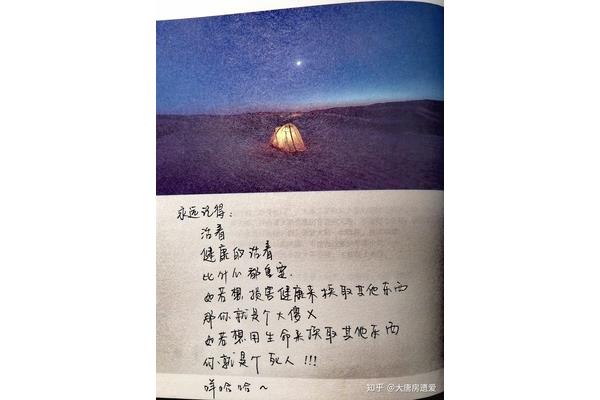 永远记得：
活着
健康的活着
比什么都重要.
如若想损害健康来换取其他东西
那你就是个大傻X
如若想用生命来换取其他东西
你就是个死人!!!
咩哈哈~
知乎 @大唐房遗爱